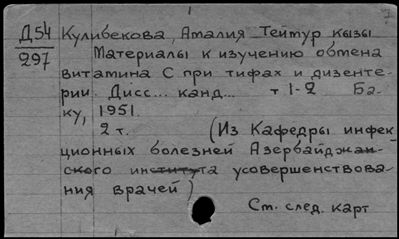 Д54
297
Кулибекова, Амалия Теймур кызы
Материалы к изучению обмена
витамина С при тифах и дизенте-
рии. Дисс... канд... т 1-2 Ба-
ку, 1951.
2 т. (Из Кафедры инфек
ционных болезней Азербайджан-
ского института усовершенствова-
ния врачей)
См. след. карт